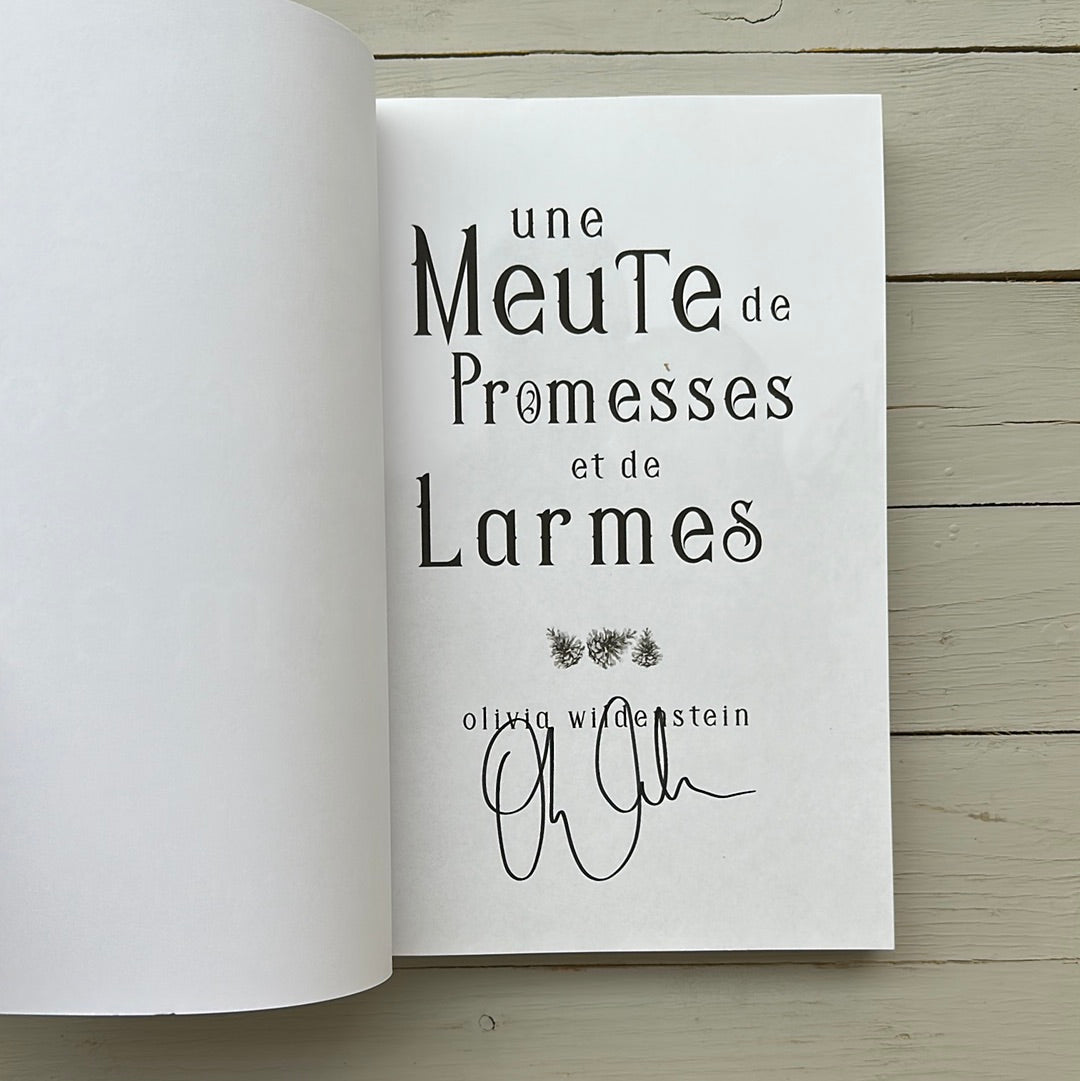 une
MeuTe de
Promesses
2
et de
Larmes
olivia wildenstein